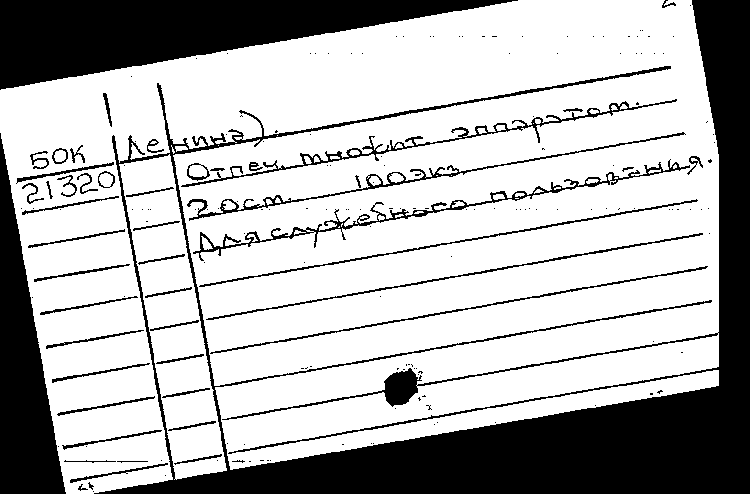 2
50К Ленина).
21320 Отпеч. множит. аппаратом.
Рост. 100экз.
Для служебного пользования.